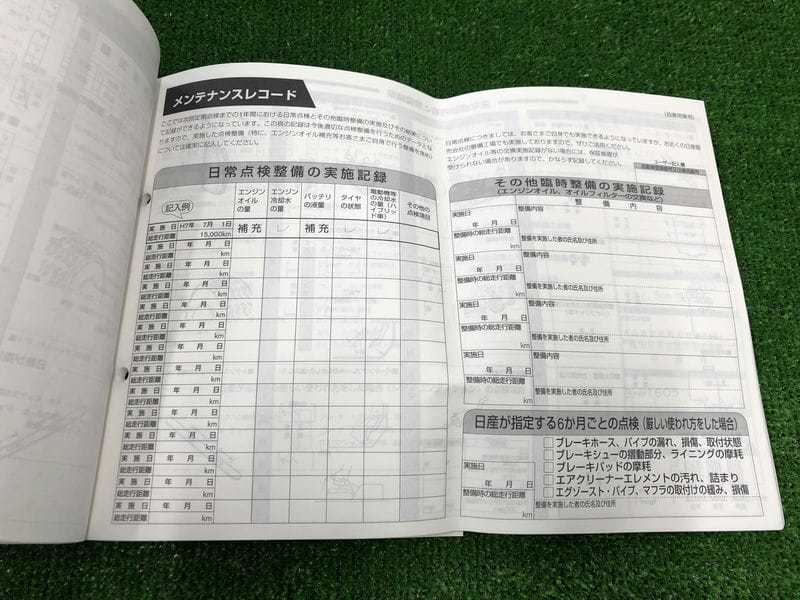 メンテナンスレコード
ここでは次回定期点検までの1年間における日常点検とその他臨時整備の実施及びその結果につい
て記録ができるようになっています。この頁の記録は今後適切な点検整備を行うためのデータとな
りますので、実施した点検整備（特に、エンジンオイル補充等お客さまご自身で行う整備を含め）
については確実に記入してください。
日常点検整備の実施記録
記入例
エンジンオイルの量
エンジン冷却水の量
バッテリの液量
タイヤの状態
電動機等の冷却水の量（ハイブリッド車）
その他の点検項目
実施日 H7年 7月 1日
補充 レ 補充 レ レ
総走行距離 15,000km
実施日 年 月 日
総走行距離 km
実施日 年 月 日
総走行距離 km
実施日 年 月 日
総走行距離 km
実施日 年 月 日
総走行距離 km
実施日 年 月 日
総走行距離 km
実施日 年 月 日
総走行距離 km
実施日 年 月 日
総走行距離 km
実施日 年 月 日
総走行距離 km
実施日 年 月 日
総走行距離 km
実施日 年 月 日
総走行距離 km
実施日 年 月 日
総走行距離 km
実施日 年 月 日
総走行距離 km
実施日 年 月 日
総走行距離 km
（自家用乗用）
日常点検につきましては、お客さまご自身でも実施できるようになっていますが、お近くの日産販
売会社の整備工場でも実施しておりますので、ぜひご活用ください。
エンジンオイル等の交換実施記録がない場合には、保証修理が
受けられない場合がありますので、かならず記録してください。
ユーザー記入欄
その他臨時整備の実施記録
（エンジンオイル、オイルフィルターの交換など）
整備内容
実施日
整備内容
年 月 日
整備時の総走行距離
整備を実施した者の氏名及び住所
km
実施日
整備内容
年 月 日
整備時の総走行距離
整備を実施した者の氏名及び住所
km
実施日
整備内容
年 月 日
整備時の総走行距離
整備を実施した者の氏名及び住所
km
実施日
整備内容
年 月 日
整備時の総走行距離
整備を実施した者の氏名及び住所
km
日産が指定する6か月ごとの点検（厳しい使われ方をした場合）
実施日
年 月 日
整備時の総走行距離
km
ブレーキホース、パイプの漏れ、損傷、取付状態
ブレーキシューの摺動部分、ライニングの摩耗
ブレーキパッドの摩耗
エアクリーナーエレメントの汚れ、詰まり
エグゾースト・パイプ、マフラの取付けの緩み、損傷
整備を実施した者の氏名及び住所